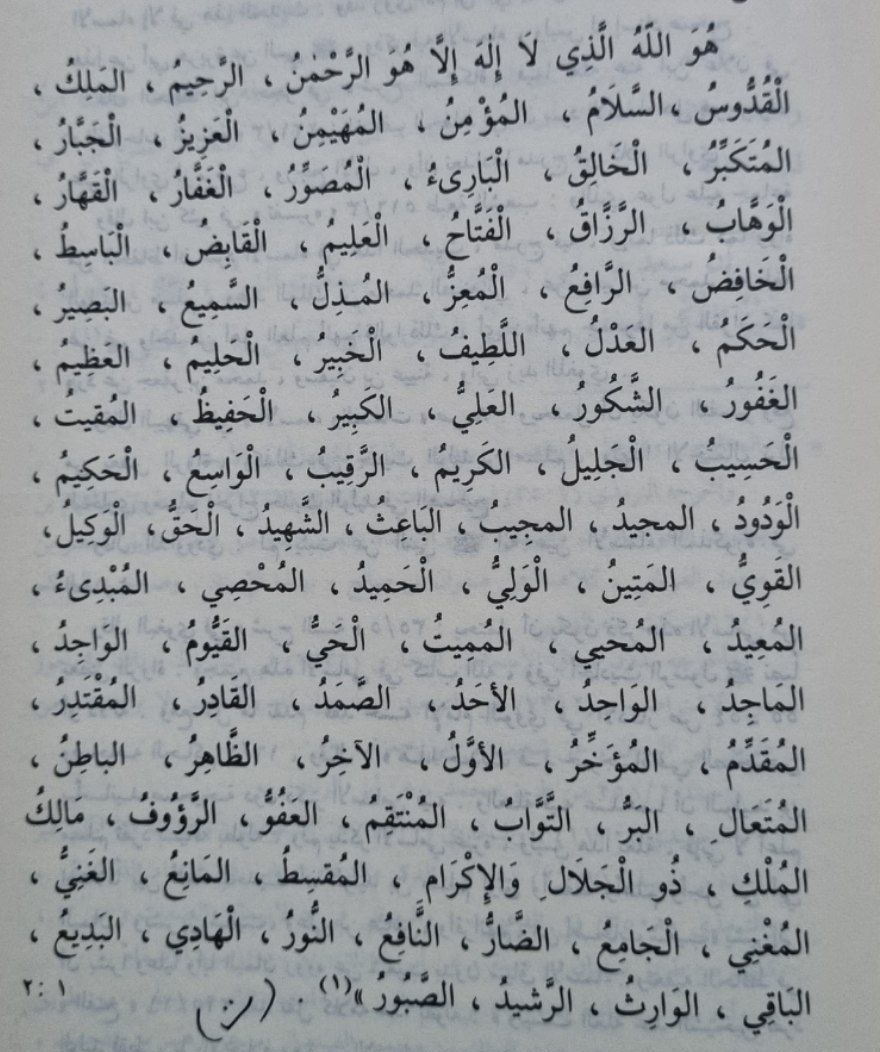 هُوَ اللّٰهُ الَّذِي لَا إِلٰهَ إِلَّا هُوَ الرَّحْمٰنُ ، الرَّحِيمُ ، المَلِكُ ،
الْقُدُّوسُ ، السَّلَامُ ، المُؤْمِنُ ، المُهَيْمِنُ ، الْعَزِيزُ ، الْجَبَّارُ ،
المُتَكَبِّرُ ، الْخَالِقُ ، الْبَارِىءُ ، الْمُصَوِّرُ ، الْغَفَّارُ ، الْقَهَّارُ ،
الْوَهَّابُ ، الرَّزَّاقُ ، الْفَتَّاحُ ، الْعَلِيمُ ، الْقَابِضُ ، الْبَاسِطُ ،
الْخَافِضُ ، الرَّافِعُ ، الْمُعِزُّ ، المُـذِلُّ ، السَّمِيعُ ، البَصِيرُ ،
الْحَكَمُ ، العَدْلُ ، اللَّطِيفُ ، الْخَبِيرُ ، الْحلِيمُ ، العظِيمُ ،
الغَفُورُ ، الشَّكُورُ ، العَلِيُّ ، الكَبِيرُ ، الْحَفِيظُ ، المُقيتُ ،
الْحَسِيبُ ، الْجَلِيلُ ، الكَرِيمُ ، الرَّقِيبُ ، الْوَاسِعُ ، الْحَكِيمُ ،
الْوَدُودُ ، المجيدُ ، المجِيبُ ، البَاعثُ ، الشَّهِيدُ ، الْحَقُّ ، الْوَكِيلُ ،
القَوِيُّ ، المَتِينُ ، الْوَلِيُّ ، الْحَمِيدُ ، المُحْصِي ، المُبْدِىءُ ،
المُعِيدُ ، المُحيي ، المُميتُ ، الْحَيُّ ، القَيُّومُ ، الوَاجِدُ ،
المَاجِدُ ، الوَاحِدُ ، الأحَدُ ، الصَّمَدُ ، القَادِرُ ، المُقْتَدِرُ ،
المُقَدِّمُ ، المُؤَخِّرُ ، الأوَّلُ ، الآخِرُ ، الظَّاهِرُ ، الباطِنُ ،
المُتَعالِ ، البَرُّ ، التَّوَّابُ ، المُنْتَقِمُ ، العَفُوُّ ، الرَّؤُوفُ ، مَالِكُ
المُلْكِ ، ذُو الْجَلَالِ وَالإِكْرَام ، المُقسِطُ ، المَانِعُ ، الغَنِيُّ ،
المُغْنِي ، الْجَامِعُ ، الضَّارُّ ، النَّافِعُ ، النُّورُ ، الْهَادِي ، البَدِيعُ ،
البَاقِي ، الوَارِثُ ، الرَّشيدُ ، الصَّبُورُ »(١) . ٢:١